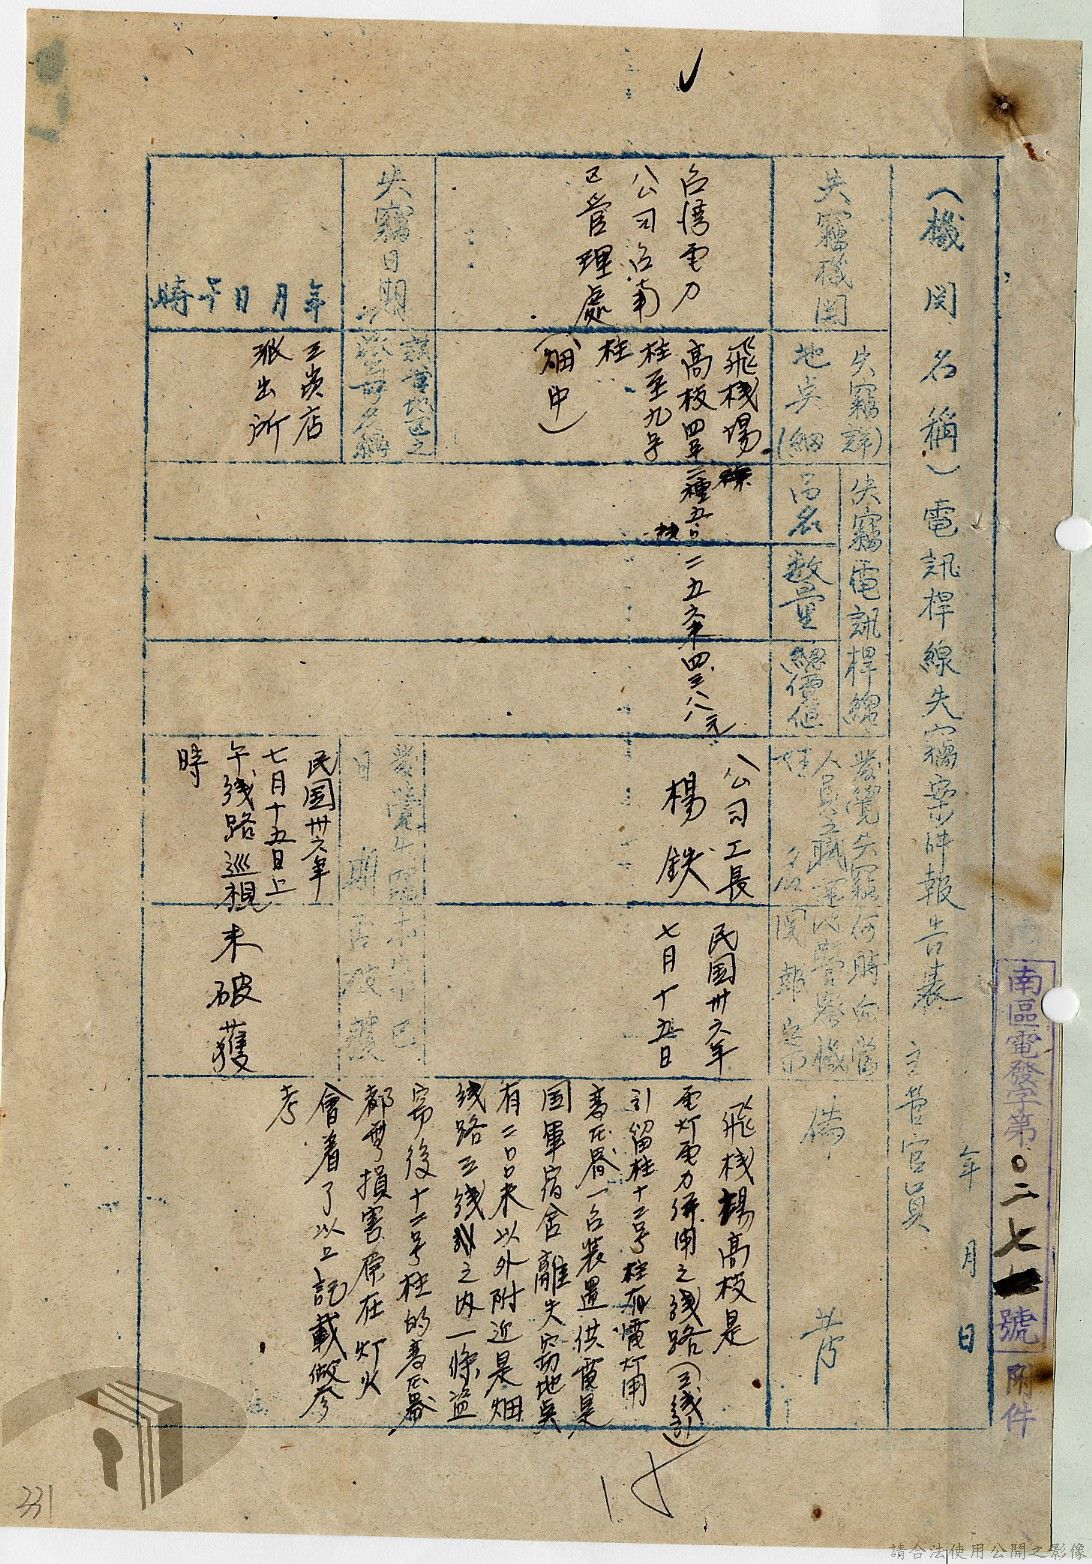 (機関名稱)電訊桿線失竊案件報告表
主管官員
年 月 日
南區電發字第〇二七號附件
失竊機関
台湾電力
公司台南
区管理處
失竊詳
地点(細)
飛栈場
高枝四号
柱至九号
柱
(畑中)
失竊電訊桿線
品名
数量
二五〇米
總價值
四三八元
發覺失竊
人員之職
姓名
公司工長
楊鉄
何時向當
地警察機
関報案
民国卅六年
七月十五日
備考
飛栈場高枝是
电灯电力併用之线路(三线式)
引留柱十二号柱有電灯用
变圧器一台装置供電是
国軍宿舍離失窃地点
有二〇〇米以外附近是畑
线路三线之内一條盗
窃後十二号柱的变圧器
都無損害原在灯火
會着了以上記載做參
考
失竊日期
年 月 日 午 時
該管地区之
警察名稱
三崁店
派出所
發覺失竊
日期
民国卅六年
七月十五日上
午线路巡視
時
本案已
否破獲
未破獲
331
請合法使用公開之影像